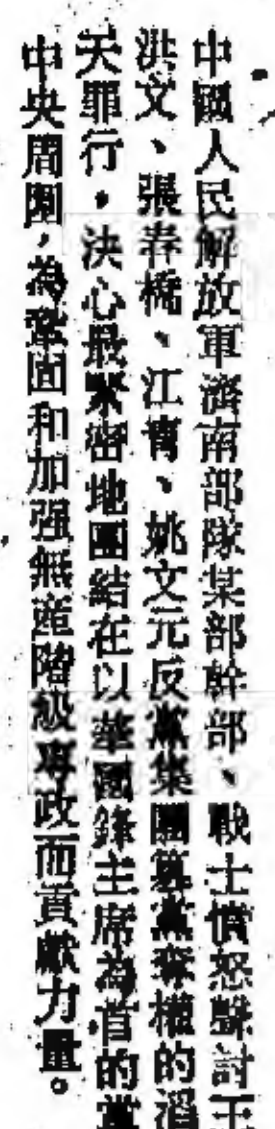 中國人民解放軍濟南部隊某部幹部、戰士憤怒聲討王
洪文、張春橋、江青、姚文元反黨集團篡黨奪權的滔
天罪行，決心最緊密地團結在以華國鋒主席為首的黨
中央周圍，為鞏固和加强無產階級專政而貢獻力量。